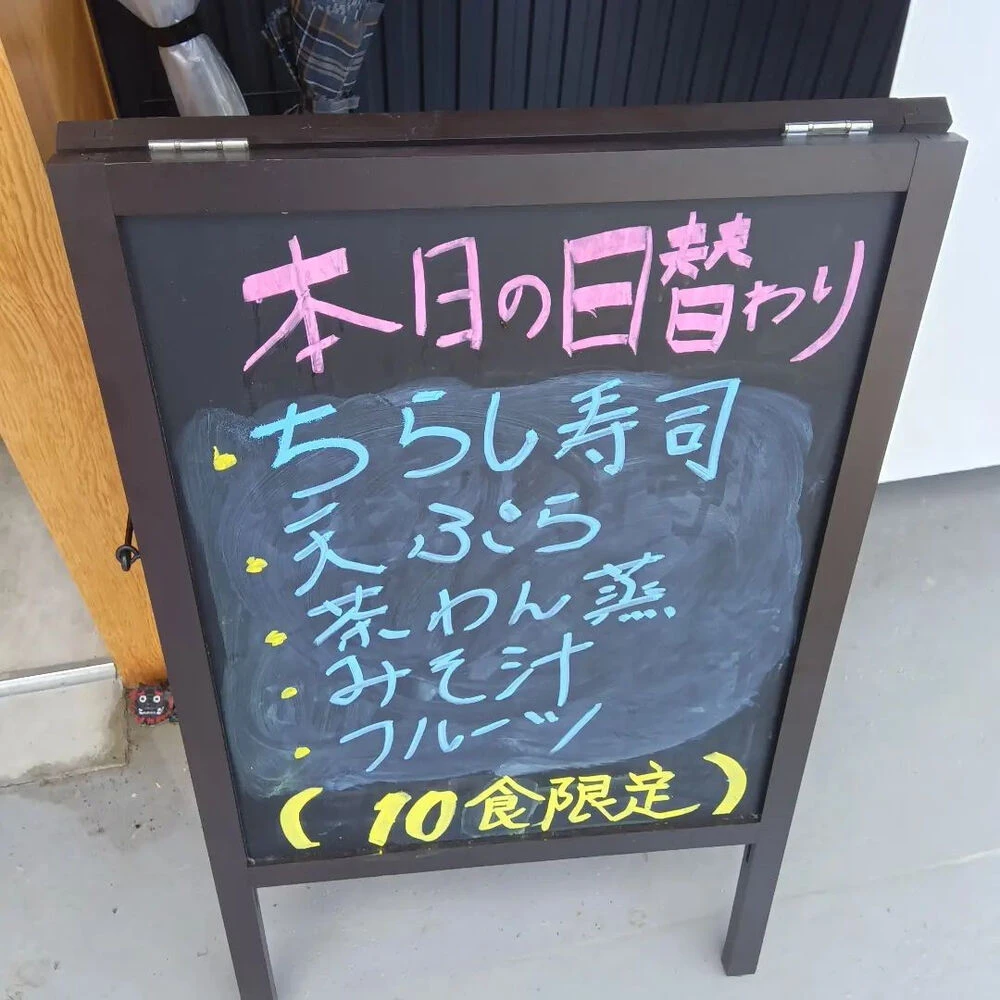 本日の日替わり
・ちらし寿司
・天ぷら
・茶わん蒸
・みそ汁
・フルーツ
(10食限定)